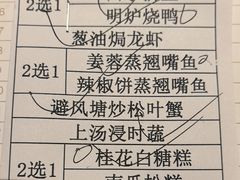 明炉烧鸭
2选1
葱油焗龙虾
姜蓉蒸翘嘴鱼
2选1
辣椒饼蒸翘嘴鱼
避风塘炒松叶蟹
上汤浸时蔬
桂花白糖糕
2选1
南瓜松糕